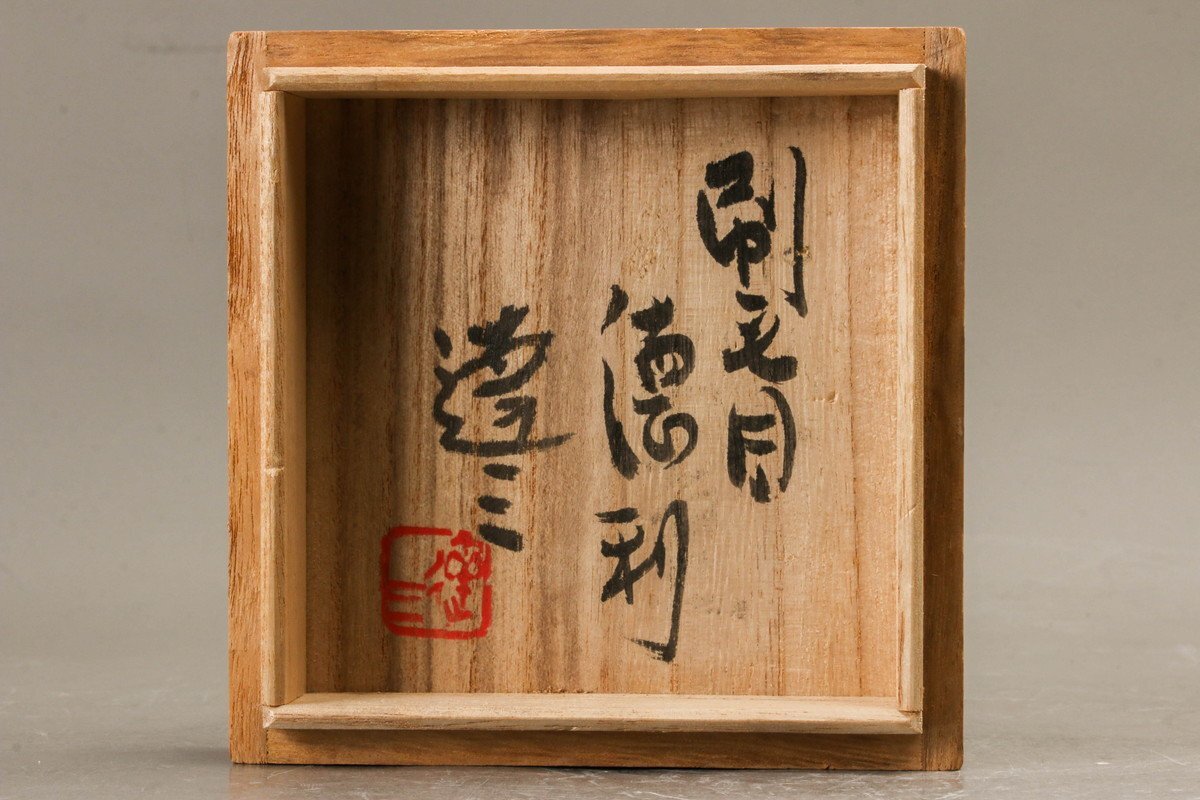 刷毛目
徳利
達三